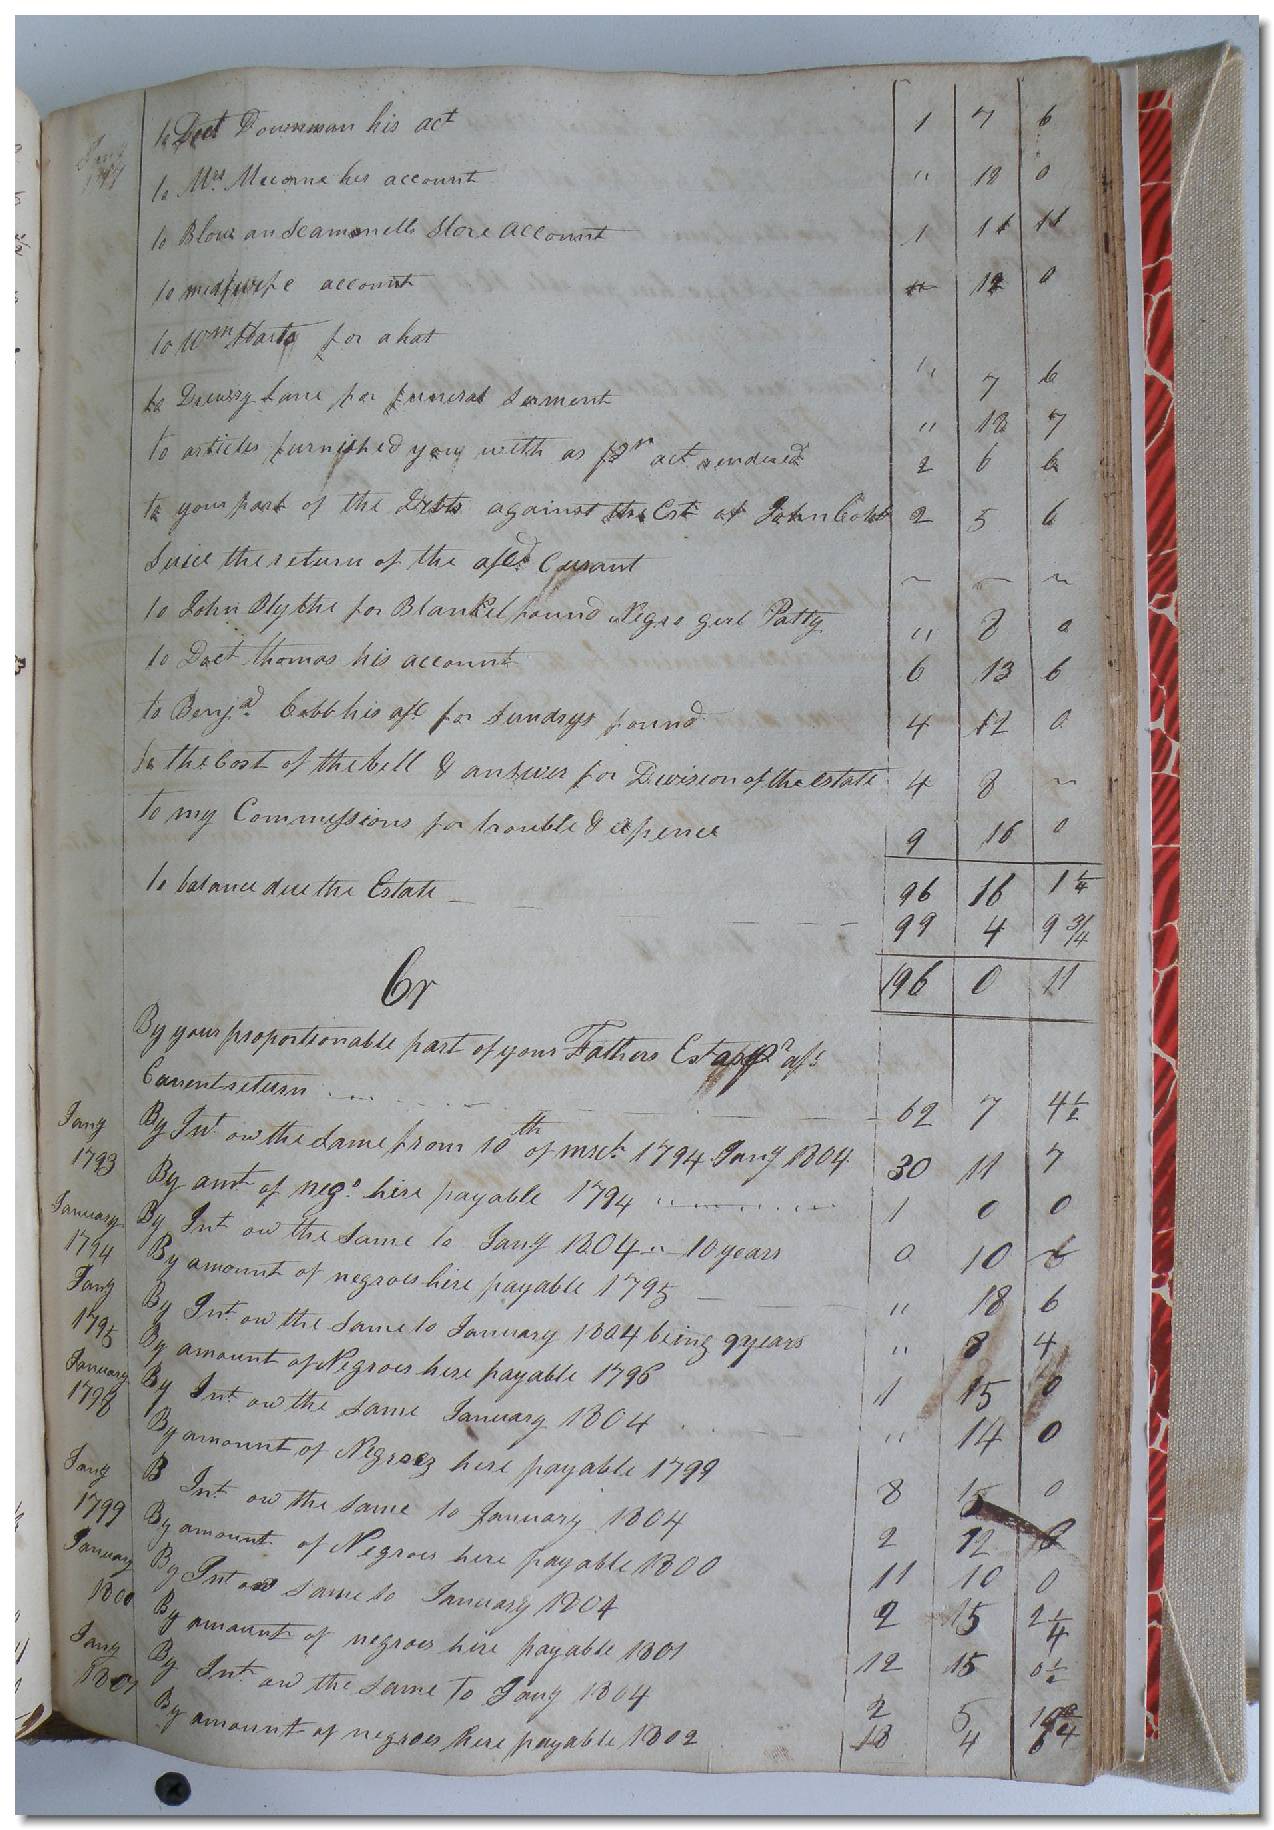 to Doct Downman his act 1 7 6
Jany
to Mrs her account " 18 0
to Blow and Scammells Store account 1 11 11
to midwife account " 12 0
to Wm Harts for a hat
" 7 6
to Drewry Lane for funeral Sarment " 18 7
to articles furnished you with as pr act rendered 2 6 6
to your part of the Debts against the Est of John Cobb 2 5 6
Since the return of the afsd Curant ~ ~ ~
to John Blythe for Blanket found Negro girl Patty " 8 0
to Doct thomas his account 6 13 6
to Benja. Cobb his afc for Sundrys found 4 12 0
to the Cost of the bill & answer for Division of the estate 4 8 ~
to my Commissions for trouble & expence 9 16 0
96 16 1 1/4
to balance due the Estate 99 4 9 3/4
196 0 11
Cr
By your proportionable part of your Fathers Est as pr afs
Current return 62 7 4 1/2
Jany By Int on the same from 10th of 1794 Jany 1804 30 11 7
1793 By amt of negs hire payable 1794 1 0 0
January By Int on the same to Jany 1804 " 10 years 0 10
1794 By amount of negroes hire payable 1795 " 18 6
Jany By Int on the same to January 1804 being 9 years " 8 4
1795 By amount of Negroes hire payable 1796 11 15 0
January By Int on the same January 1804 " 14 0
1798 By amount of Negroes hire payable 1799 8 15 0
Jany B Int on the same to January 1804 2 12
1799 By amount of Negroes hire payable 1800 11 10 0
January By Int on same to January 1804 2 15 2 1/4
1800 By amount of negroes hire payable 1801 12 15 0 1/2
Jany By Int on the same to Jany 1804 2 5
1801 By amount of negroes hire payable 1802 18 4 6